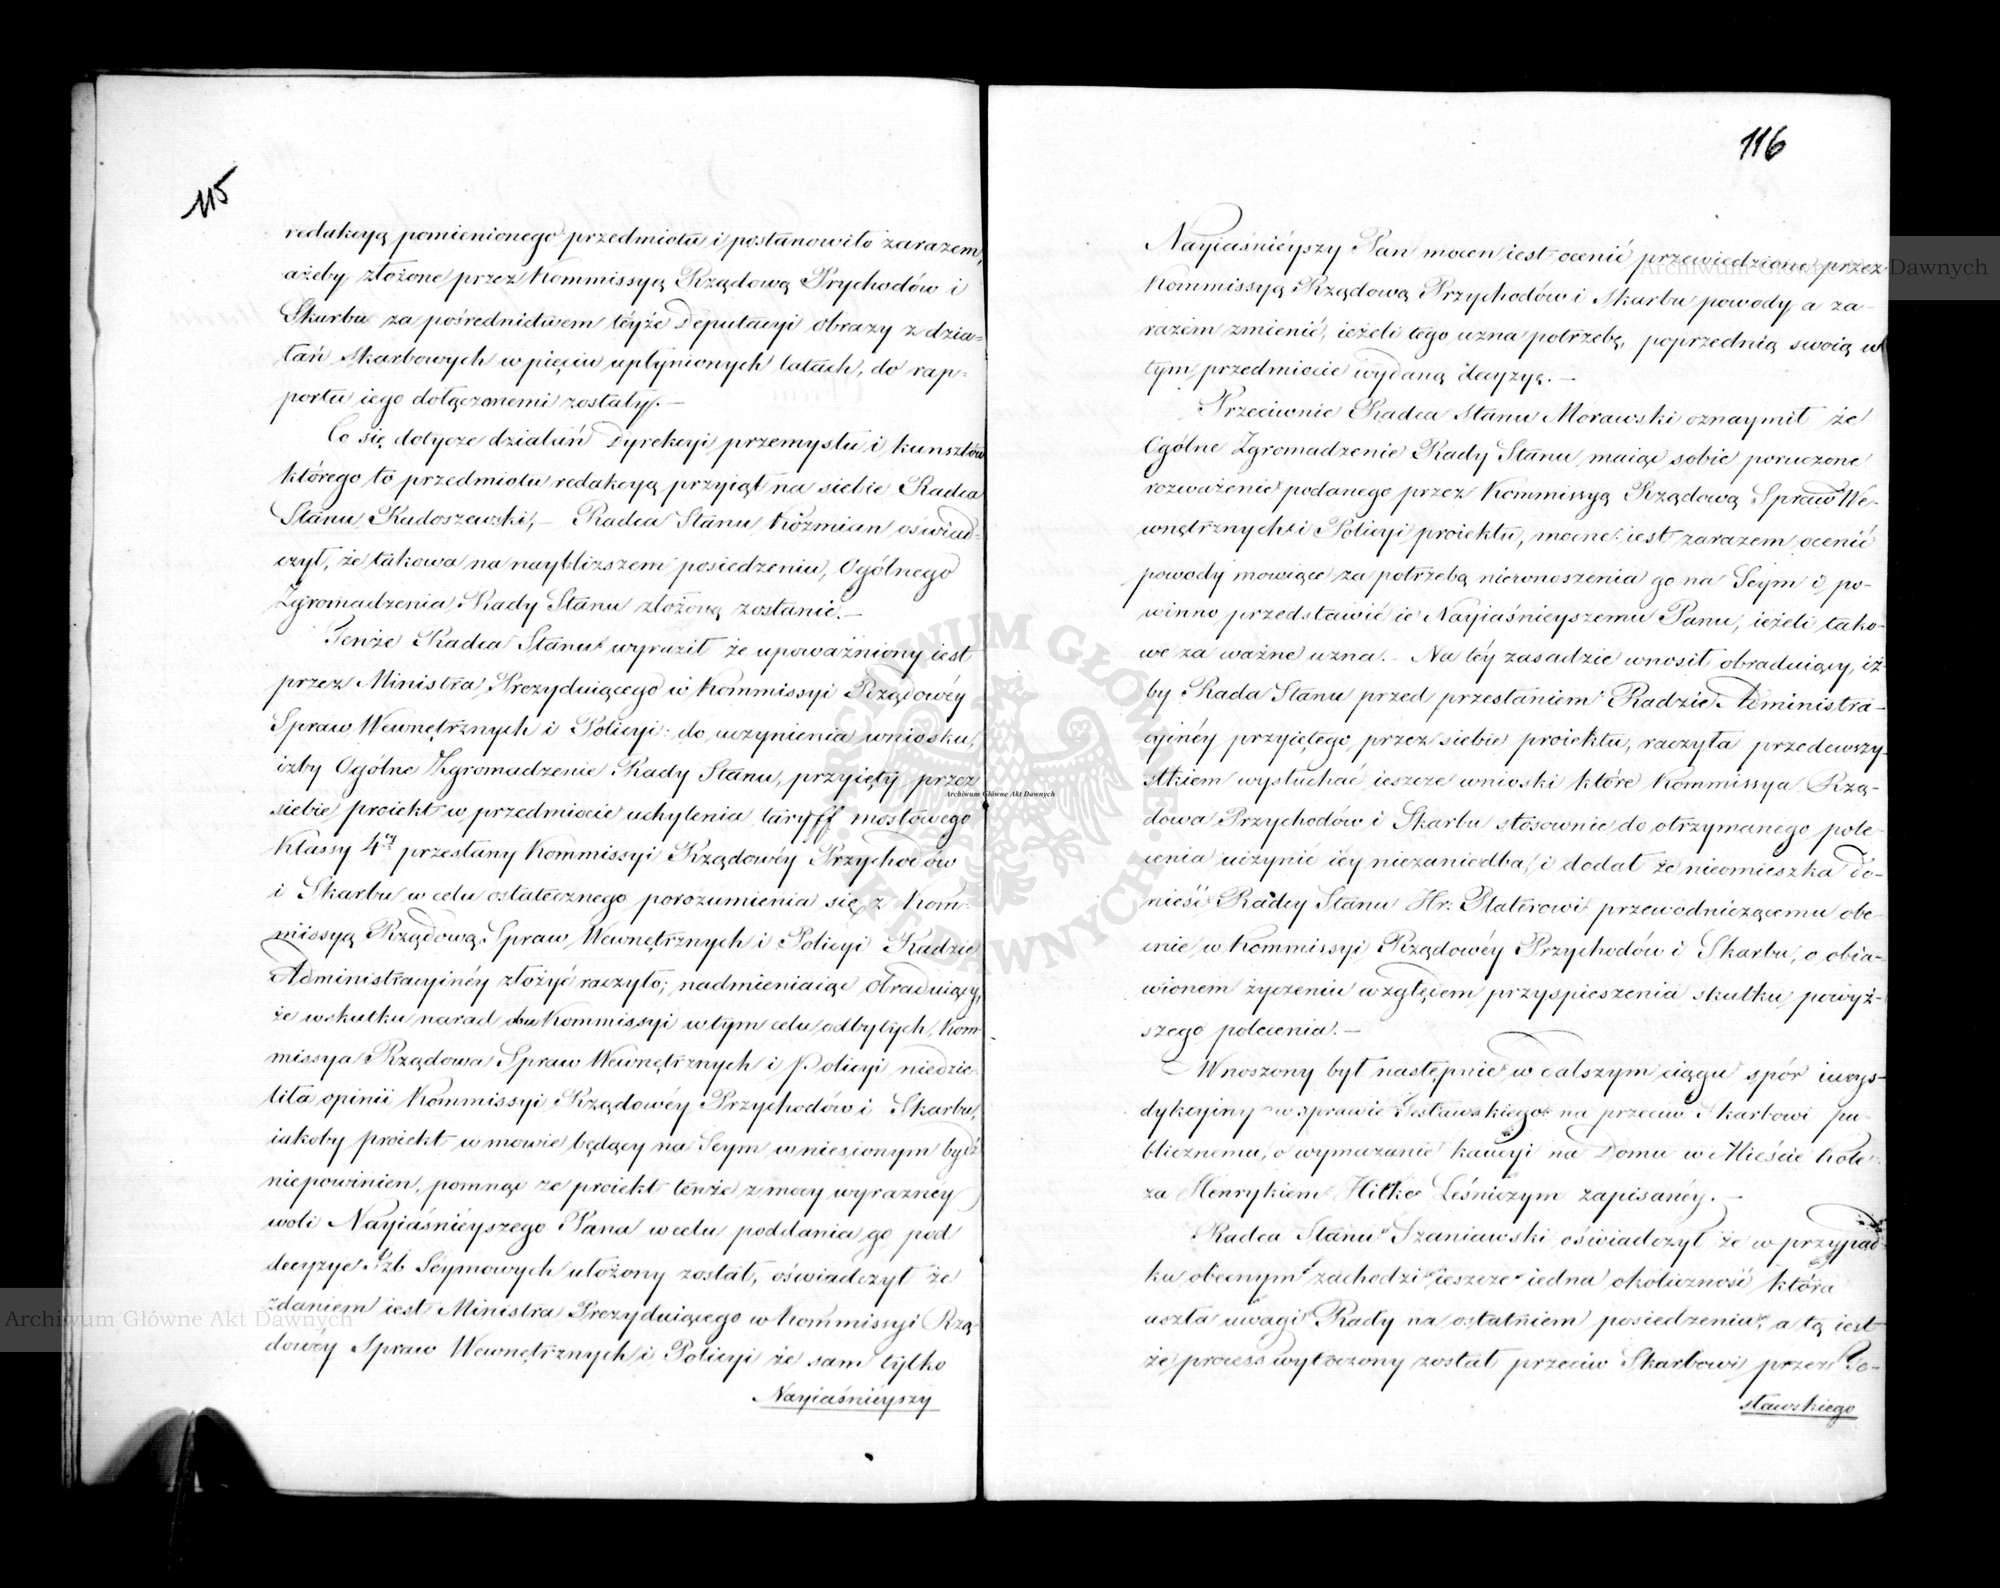 115
redakcyą pomienionego przedmiotu i postanowiło zarazem,
ażeby złożone przez Kommissyą Rządową Prychodów i
Skarbu za pośrednictwem téyże Deputacyi obrazy z dzia=
łań skarbowych w pięciu upłynionych latach, do rap=
portu iego dołączonemi zostały.—
Co się dotycze działań Dyrekcyi przemysłu i kunsztów
którego to przedmiotu redakcyą przyiął na siebie Radca
Stanu Radoszewski,— Radca Stanu Koźmian oświad=
czył, że takowa na nayblizszem posiedzeniu, Ogólnego
Zgromadzenia Rady Stanu złożoną zostanie.—
Tenże Radca Stanu wyraził że upoważniony iest
przez Ministra Prezyduiącego w Kommissyi Rządowéy
Spraw Wewnętrznych i Policyi do uczynienia wniosku,
izby Ogólne Zgromadzenie Rady Stanu, przyięty przez
siebie proiekt w przedmiocie uchylenia taryff mostowego
Klassy 4ey przesłany Kommissyi Rządowéy Przychodów
i Skarbu w celu ostatecznego porozumienia się z Kom=
missyą Rządową Spraw Wewnętrznych i Policyi Radzie
Administracyinéy złożyć raczyło; nadmieniaiąc obraduiący,
że w skutku narad obu Kommissyi w tym celu odbytych, Kom=
missya Rządowa Spraw Wewnętrznych i Policyi niedzie=
liła opinii Kommissyi Rządowéy Przychodów i Skarbu,
iakoby proiekt w mowie będący na Seym wniesionym bydź
niepowinien, pomnąc ze proiekt tenże z mocy wyraznéy
woli Nayiaśniéyszego Pana w celu poddania go pod
decyzye Izb Séymowych ułożony został, oświadczył że
zdaniem iest Ministra Prezyduiącego w Kommissyi Rzą=
dowéy Spraw Wewnętrznych i Policyi że sam tylko
Nayiaśniéyszy
116
Nayiaśniéyszy Pan mocen iest ocenić przewiedzione przez
Kommissyą Rządową Przychodów i Skarbu powody a za=
razem zmienić, ieżeli tego uzna potrzebę, poprzednią swoią w
tym przedmiocie wydaną decyzyę.—
Przeciwnie Radca Stanu Morawski oznaymił że
Ogólne Zgromadzenie Rady Stanu maiąc sobie poruczone
rozważenie podanego przez Kommissyą Rządową Spraw We=
wnętrznych i Policyi proiektu, mocne iest zarazem ocenić
powody mowiące za potrzebą niewnoszenia go na Seym i po=
winno przedstawić ie Nayiaśnieyszemu Panu, ieżeli tako=
we za ważne uzna.- Na téy zasadzie wnosił obraduiący, iż
by Rada Stanu przed przesłaniem Radzie Administra=
cyinéy przyiętego przez siebie proiektu, raczyła przedewszy=
stkiem wysłuchać ieszcze wnioski które Kommissya Rzą=
dowa Przychodów i Skarbu stosownie do otrzymanego pole=
cenia uczynić iéy niezaniedba, i dodał że nieomieszka do=
nieść Radcy Stanu Hr: Platerowi przewodniczącemu obe=
cnie w Kommissyi Rządowéy Przychodów i Skarbu, o obia=
wionem życzeniu względem przyspieszenia skutku powyż=
szego polecenia.—
Wnoszony był następnie w dalszym ciągu spór iurys=
dykcyiny w sprawie Tesławskiego na przeciw Skarbowi pu=
blicznemu, o wymazanie kaucyi na Domu w Mieście Kole
za Henrykiem Hilke Leśniczym zapisanéy.—
Radca Stanu Szaniawski oświadczył że w przypad=
ku obecnym zachodzi ieszcze iedna okoliczność która
uszła uwagi Rady na ostatniem posiedzeniu, a tą iest
że process wytoczony został przeciw Skarbowi przez Te=
sławskiego
Archiwum Główne Akt Dawnych